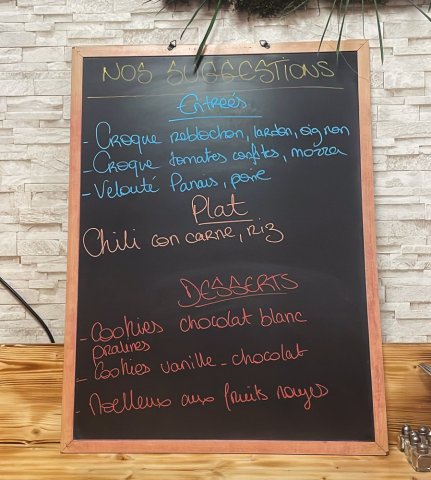 NOS SUGGESTIONS
Entreés
- Croque reblochon, lardon, oignon
- Croque tomates confites, mozza
- Velouté Panais, poire
Plat
Chili con carne, riz
DESSERTS
- Cookies chocolat blanc
pralines
- Cookies vanille - chocolat
- Moelleux aux fruits rouges